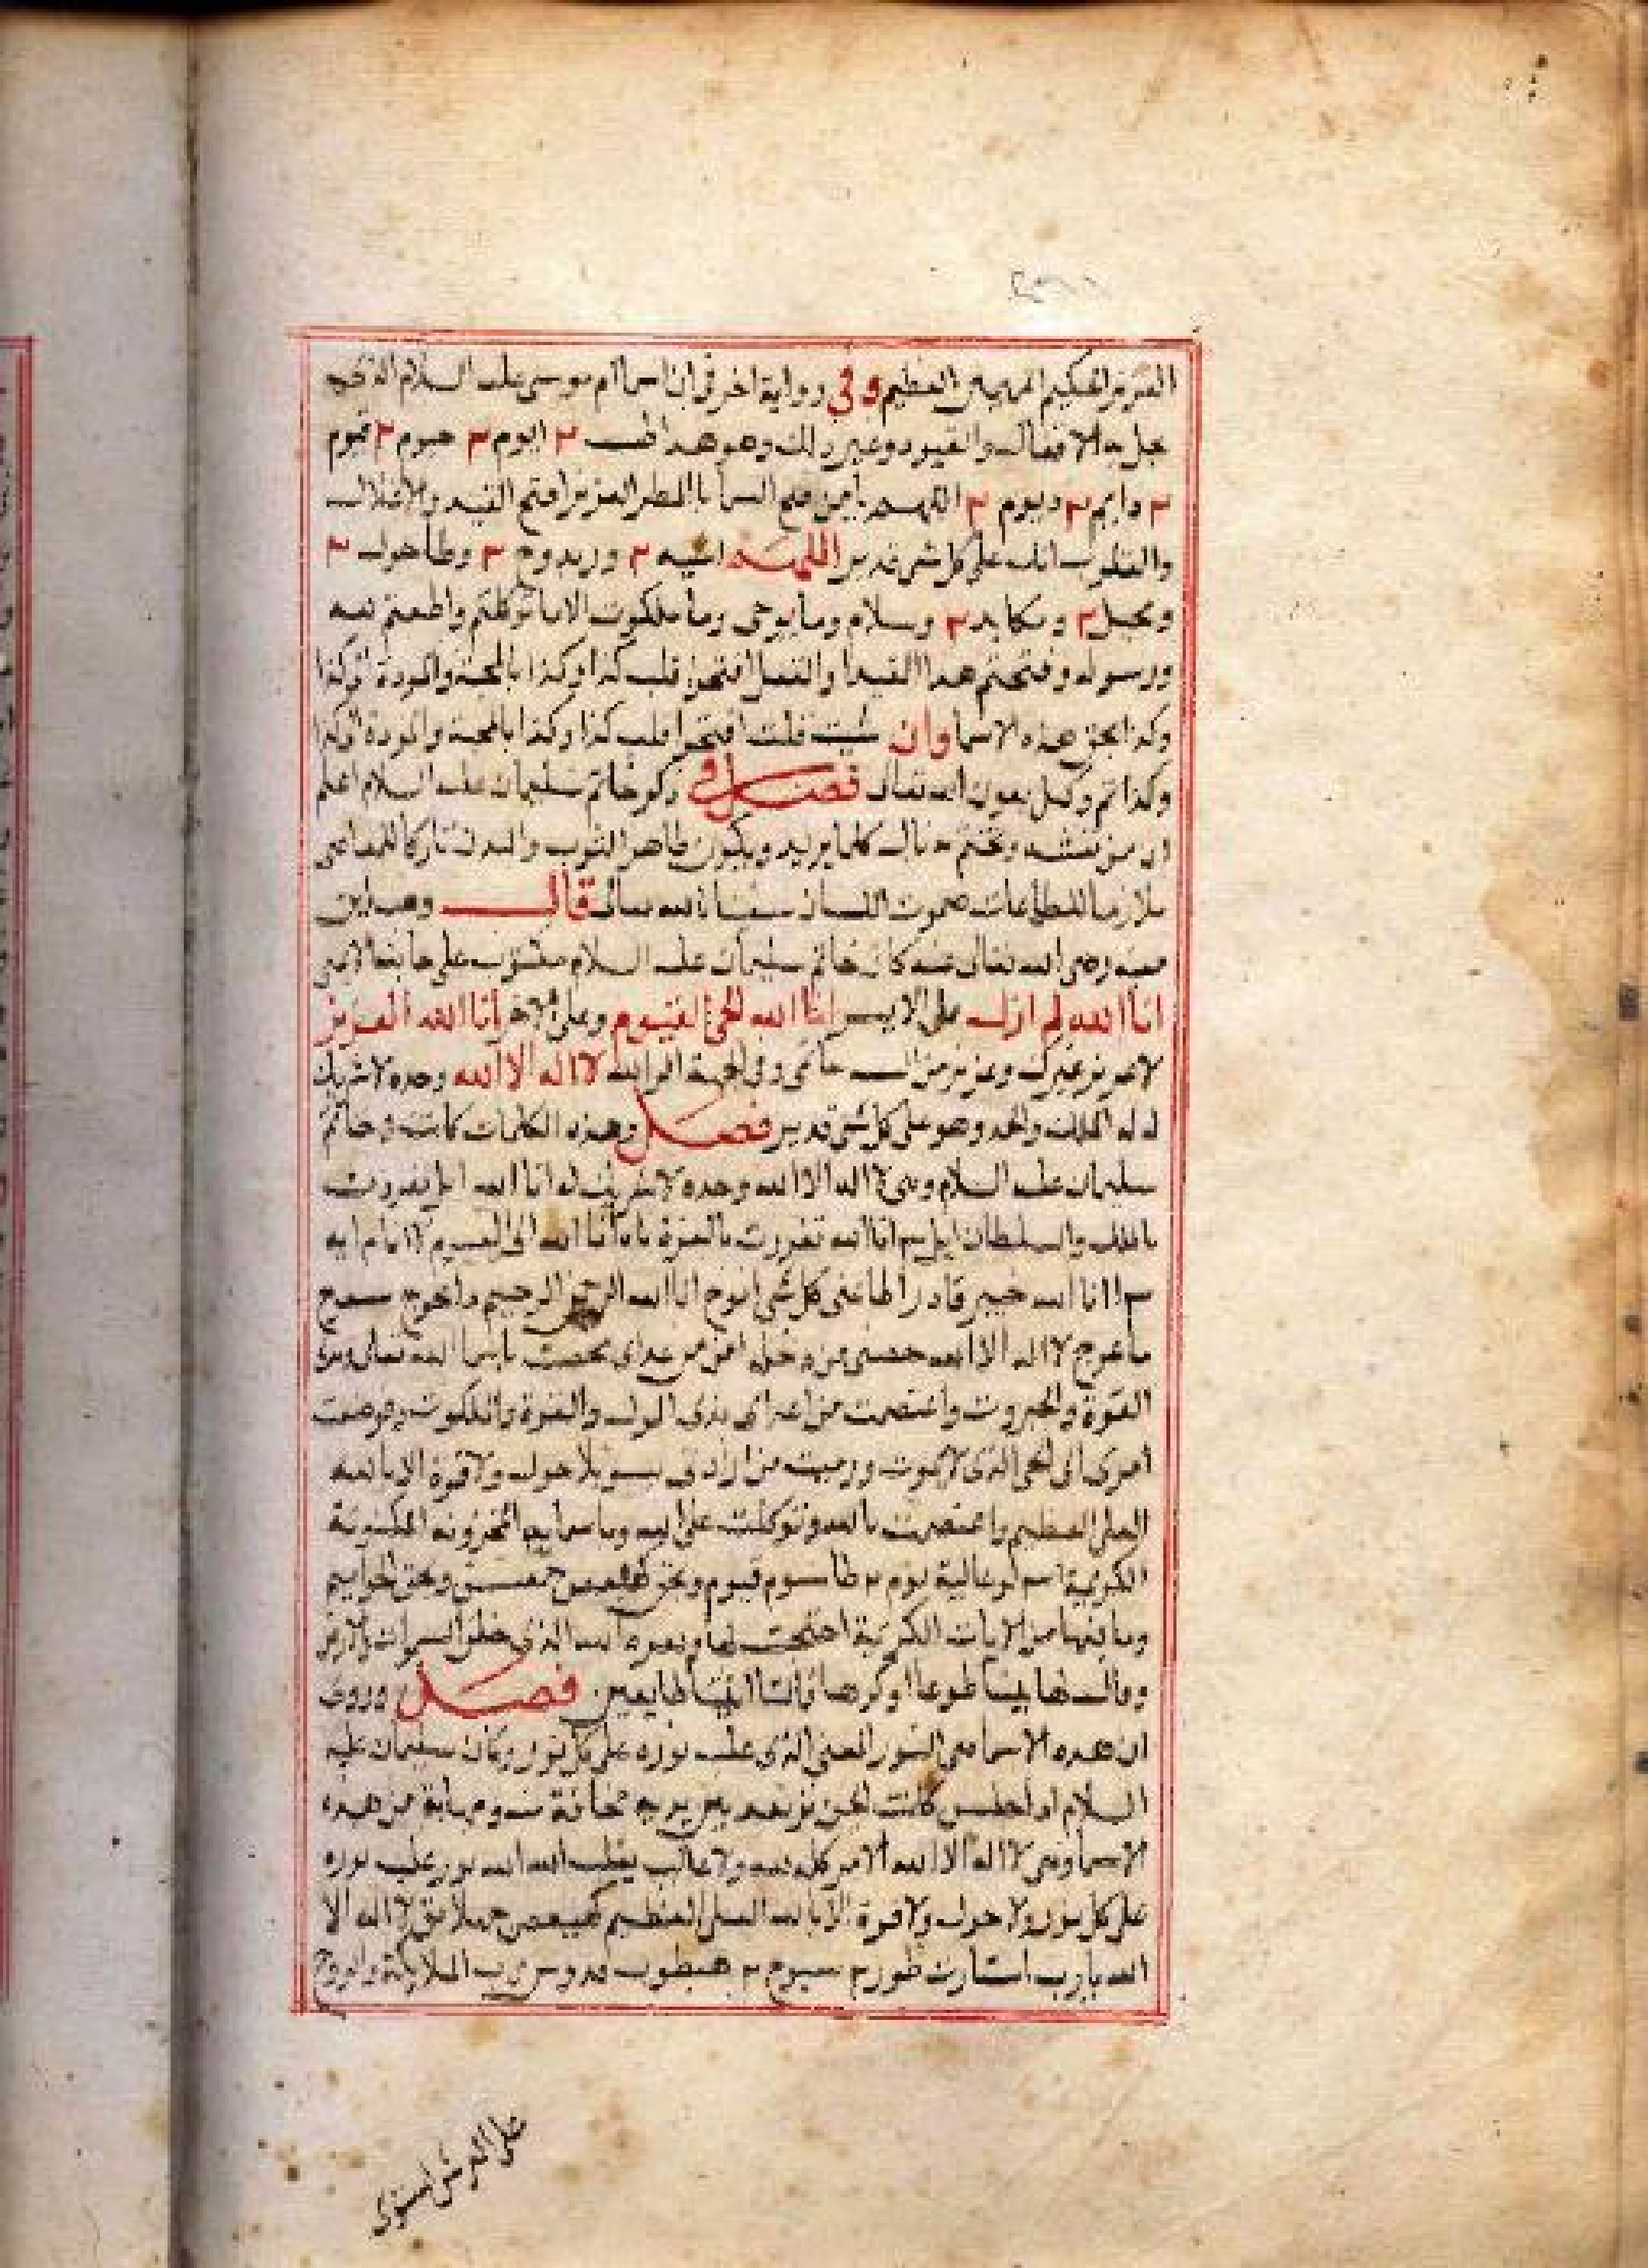 العزيز الحكيم المهيمن العظيم وفي رواية اخرى ان اسما ام موسى عليه السلام الذي
الاقفال والقيود وغير ذلك وهو هذا ٣ ايوم ٣ حيوم ٣ قيوم
٣ دايم ٣ ديوم ٣ اللهم يا من فتح السما بالمطر الغزير افتح القيد والاغلال
والقلوب انك على كل شي قدير اللهم ٣ ٣ وطاحول ٣
٣ ومكايد ٣ وسلام وما يوحى وما ملكوت الا ما توكلتم واطعتم لله
ورسوله وفتحتم هذا القيد او القفل افتحوا قلب كذا وكذا بالمحبة والمودة لكذا
وكذا بحق هذه الاسما وان شيت قلت افتحوا قلب كذا وكذا بالمحبة والمودة لكذا
وكذا تم وكمل بعون الله تعالى فصل في ذكر خاتم سليمان عليه السلام اعلم
ان من نقشه وتختم به نال كلما يريد ويكون طاهر الثوب والبدن تاركا للمعاصي
ملازما للطاعات صموت اللسان الله تعالى قال وهب ابن
منبه رضي الله تعالى عنه كان خاتم سليمان عليه السلام مكتوب على جانبه الايمن
انا الله لم ازل على الايسر انا الله الحي القيوم وعلى الاخر انا الله العزيز
لا عزيز غيري وعزيز من خاتمي وفي الجهة الرابعة لا اله الا الله وحده لا شريك
له له الملك والحمد وهو على كل شي قدير فصل وهذه الكلمات كانت في خاتم
سليمان عليه السلام وهي لا اله الا الله وحده لا شريك له انا الله ايل تفردت
بالملك والسلطان ايل ٣ انا الله تعززت بالعزة انا الله الحي القيوم
٣ انا الله خبير قادر اطاعني كل شي انوخ انا الله الرحمن الرحيم
لا اله الا الله حصني من دخله امن من عذابي تحصنت باسما الله تعالى وبذي
القوة والجبروت واعتصمت من اعداي بذي الحول والقوة والملكوت وفوضت
أمري الى الحي الذي لا يموت ورميت من ارادني بسو بلا حول ولا قوة الا بالله
العلي العظيم واعتصمت بالله وتوكلت على الله وباسمايه المخزونة المكنونة
الكريمة يوم ٣ طاسوم قيوم وبحق كهيعص حمعسق وبحق الحواميم
وما فيها من الايات الكريمة احتجبت الله الذي خلق السموات والارض
وقال لها ايتيا طوعا او كرها قالتا اتينا طايعين فصل وروي
ان هذه الاسما هي النور المضي الذي غلب نوره على كل نور وكان سليمان عليه
السلام اذا جلس كانت الجن ترتعد بين يديه مخافة منه ومهابة من هذه
الاسما وهي لا اله الا الله الامر كله لله ولا غالب يغلب الله الله نور غلب نوره
على كل نور ولا حول ولا قوة الا بالله العلي العظيم كهيعص لا اله الا
الله يارب استنارت طور ٣ سبوح ٣ قدوس رب الملايكة والروح
على العرش استوى